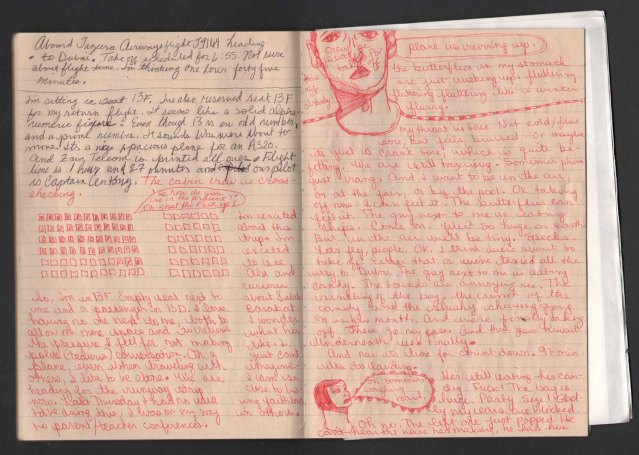 Aboard Jazeera Airways flight J9164 heading
to Dubai. Take off scheduled for 6:55. Not sure
about flight time. I'm thinking one hour forty five
minutes.
I'm sitting in seat 13F. I've also reserved seat 13F
for my return flight. It seems like a solid alpha-
numeric figure. Even though 13 is an odd number,
and a prime number. It sounds like we're about to
move. It's a very spacious plane for an A320.
And Zain Telecom is printed all over. Flight
time is 1 hour and 27 minutes and our pilot
is Captain
The cabin crew is cross-
checking.
So, I'm in 13F. Empty seat next to
me and a passenger in 13D. I love
having no one next to me, both to
allow me more space and to relieve
the pressure I feel for not making
polite (tedious) conversation. On a
plane, even when traveling with
others, I like to be alone. We are
heading for the runway strip
now. Last Thursday I had no idea
I was on my way
to parent/teacher conferences.
I'm excited
about this
trip. I'm
excited
to see
and
curious
about
I wonder
what he
like is. I
just can't
imagine.
I am
in others.
plane is revving up.
The butterflies in my stomach
are just waking up. Fluttering
fluttering fluttering like a winter
flurry.
my throat is sore. Not cold/flu
sore, but feels bruised. Or maybe
it's just a crank sore. We are still taxiing. Someone's phone
just rang. And I want to be in the air,
or at the fair, or by the pool. Ok taking
off now. I can feel it. The butterflies can
feel it. The guy next to me is eating
chips. Come on. You're so huge on earth
but in the air we'll be tiny specks.
Let's fly people. OK, I think we're about to
take off. Either that or we've taxied all the
way to Dubai. The guy next to me is eating
candy. The sounds are annoying me. The
crinkling of the bag, the crunch of the
candy and the slushy chewing going
on in his mouth. And we are finally taking
off. There go my ears. And there goes Kuwait
underneath us. Finally.
And now it's time for count down. 97 min-
utes to landing.
He's still eating his can-
dy. Fuck! The bag is
huge. Party size! God-
my ears are blocked
Oh no. The left one just popped. He
can't hear the noise he's making, he has his